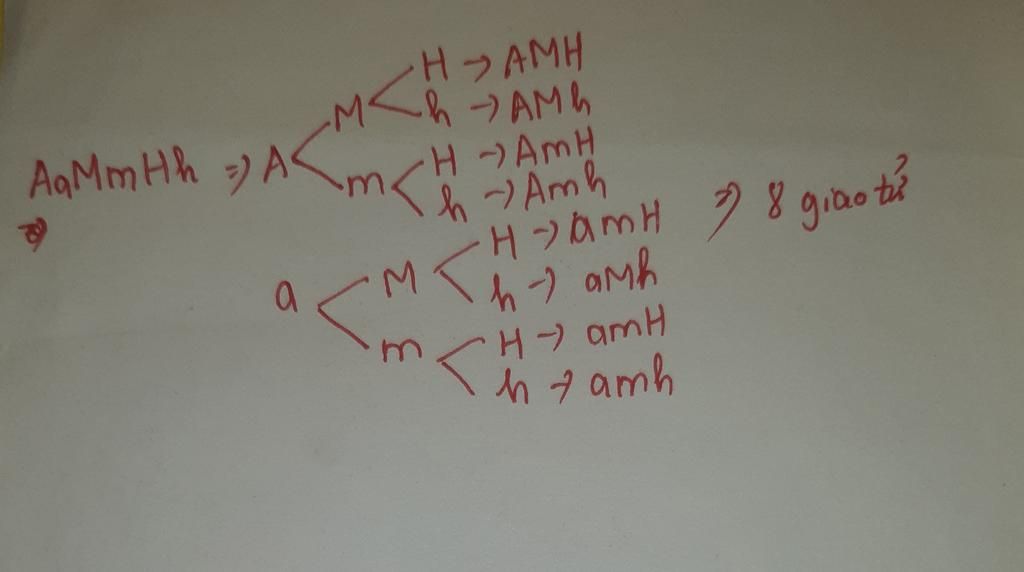 H → AMH
M
h → AMh
AaMmHh => A
H → AmH
m
h → Amh
H → amH
=> 8 giao tử
M
h → aMh
a
H → amH
m
h → amh